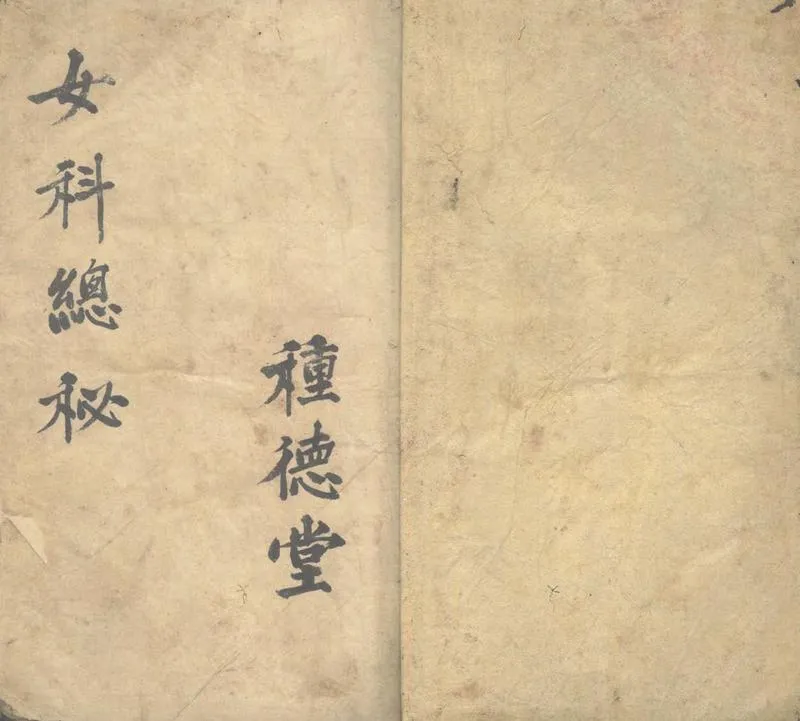 女科總秘
種德堂